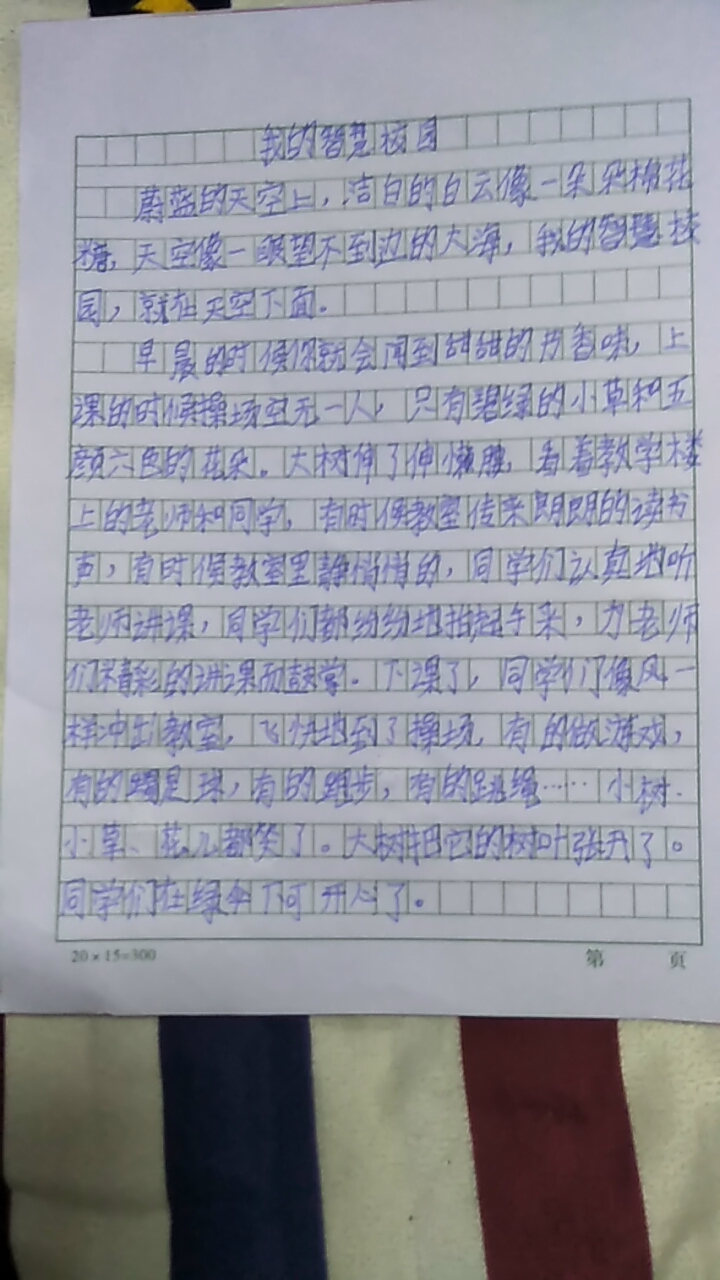 我的智慧校园
蔚蓝的天空上，洁白的白云像一朵朵棉花
糖，天空像一眼望不到边的大海，我的智慧校
园，就在天空下面。
早晨的时候你就会闻到甜甜的丹香味，上
课的时候操场空无一人，只有碧绿的小草和五
颜六色的花朵。大树伸了伸懒腰，看着教学楼
上的老师和同学，有时候教室传来朗朗的读书
声，有时候教室里静悄悄的，同学们认真地听
老师讲课，同学们都纷纷地抬起手来，为老师
们精彩的讲课而鼓掌。下课了，同学们像风一
样冲出教室，飞快地到了操场，有的做游戏，
有的踢足球，有的跑步，有的跳绳……小树、
小草、花儿都笑了。大树把它的树叶张开了。
同学们在绿伞下可开心了。
20×15=300
第 页